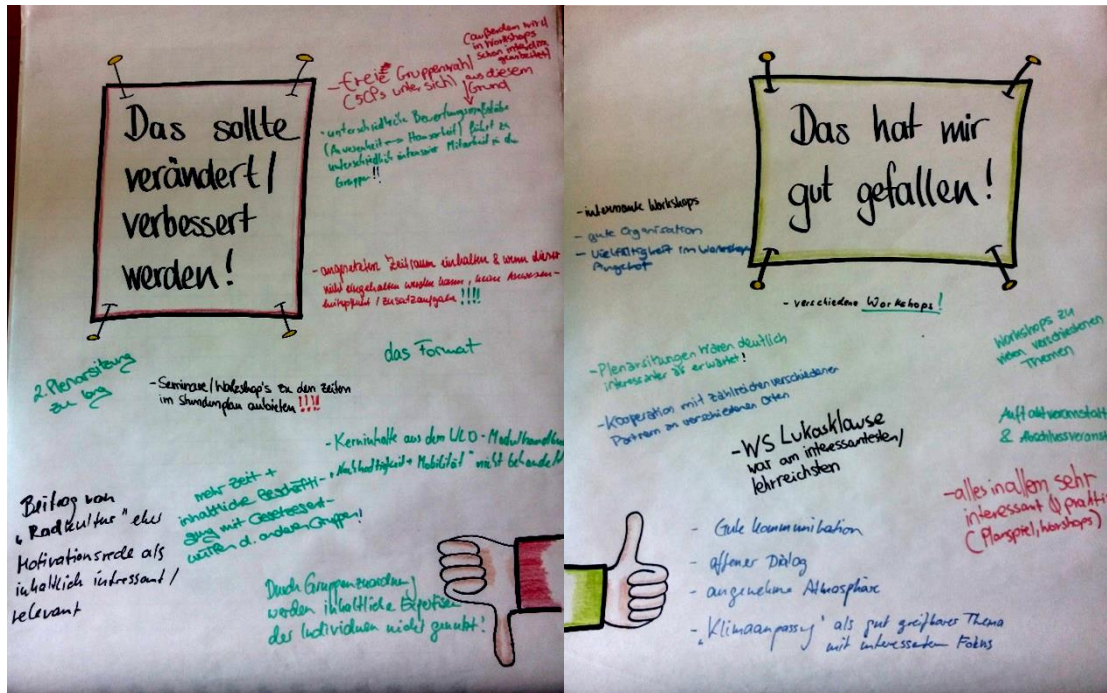 Das sollte
verändert/
verbessert
werden!
(außerdem wird
in Workshops
schon interdisz.
gearbeitet)
- freie Gruppenwahl
(5CPs unter sich) aus diesem
Grund
- unterschiedliche Bewertungsmaßstäbe
(Anwesenheit ↔ Hausarbeit) führt zu
unterschiedlich intensiver Mitarbeit in den
Gruppen!!
- angesetzten Zeitraum einhalten & wenn dieser
nicht eingehalten werden kann, keine Anwesen-
heitspflicht / Zusatzaufgaben!!!!
das Format
2. Plenarsitzung
zu lang
- Seminare/Workshop's zu den Zeiten
im Stundenplan anbieten!!!!
- Kerninhalte aus dem ULO-Modulhandbu
"Nachhaltigkeit + Mobilität" nicht behandelt
mehr Zeit +
inhaltliche Beschäfti-
gung mit Gesetzesent-
würfen d. anderen Gruppen!
Beitrag von
"Radkultur" eher
Motivationsrede als
inhaltlich intressant/
relevant
Durch Gruppenzuordnung
werden inhaltliche Expertisen
der Individuen nicht genutzt!
Das hat mir
gut gefallen!
- interessante Workshops
- gute Organisation
- Vielfältigkeit im Workshop
Angebot
- verschiedene Workshops!
- Plenarsitzungen waren deutlich
interessanter als erwartet!
Workshops zu
vielen verschiedenen
Themen
- Kooperation mit zahlreichen verschiedenen
Partnern an verschiedenen Orten
- WS Lukasklause
war am interessantesten/
lehrreichsten
Auftaktveranstalt
& Abschlussveranst
- alles in allem sehr
interessant & prakti
(Planspiel, Worshops)
- Gute Kommunikation
- offener Dialog
- angenehme Atmosphäre
- "Klimaanpassung" als gut greifbares Thema
mit interessantem Fokus